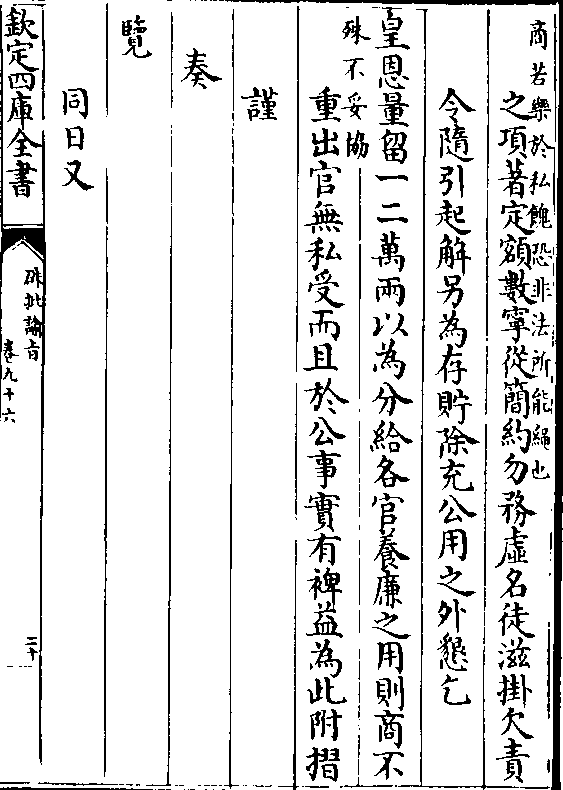 商若樂於私餽恐非法所能繩也
之項著定額數寧從簡約勿務虛名徒滋掛欠責
令隨引起解另為存貯除充公用之外懇乞
皇恩量留一二萬兩以為分給各官養廉之用則商不
殊不妥協
重出官無私受而且於公事實有裨益為此附摺
謹
奏
覽
同日又
欽定四庫全書
硃批諭旨
卷九十六
三十